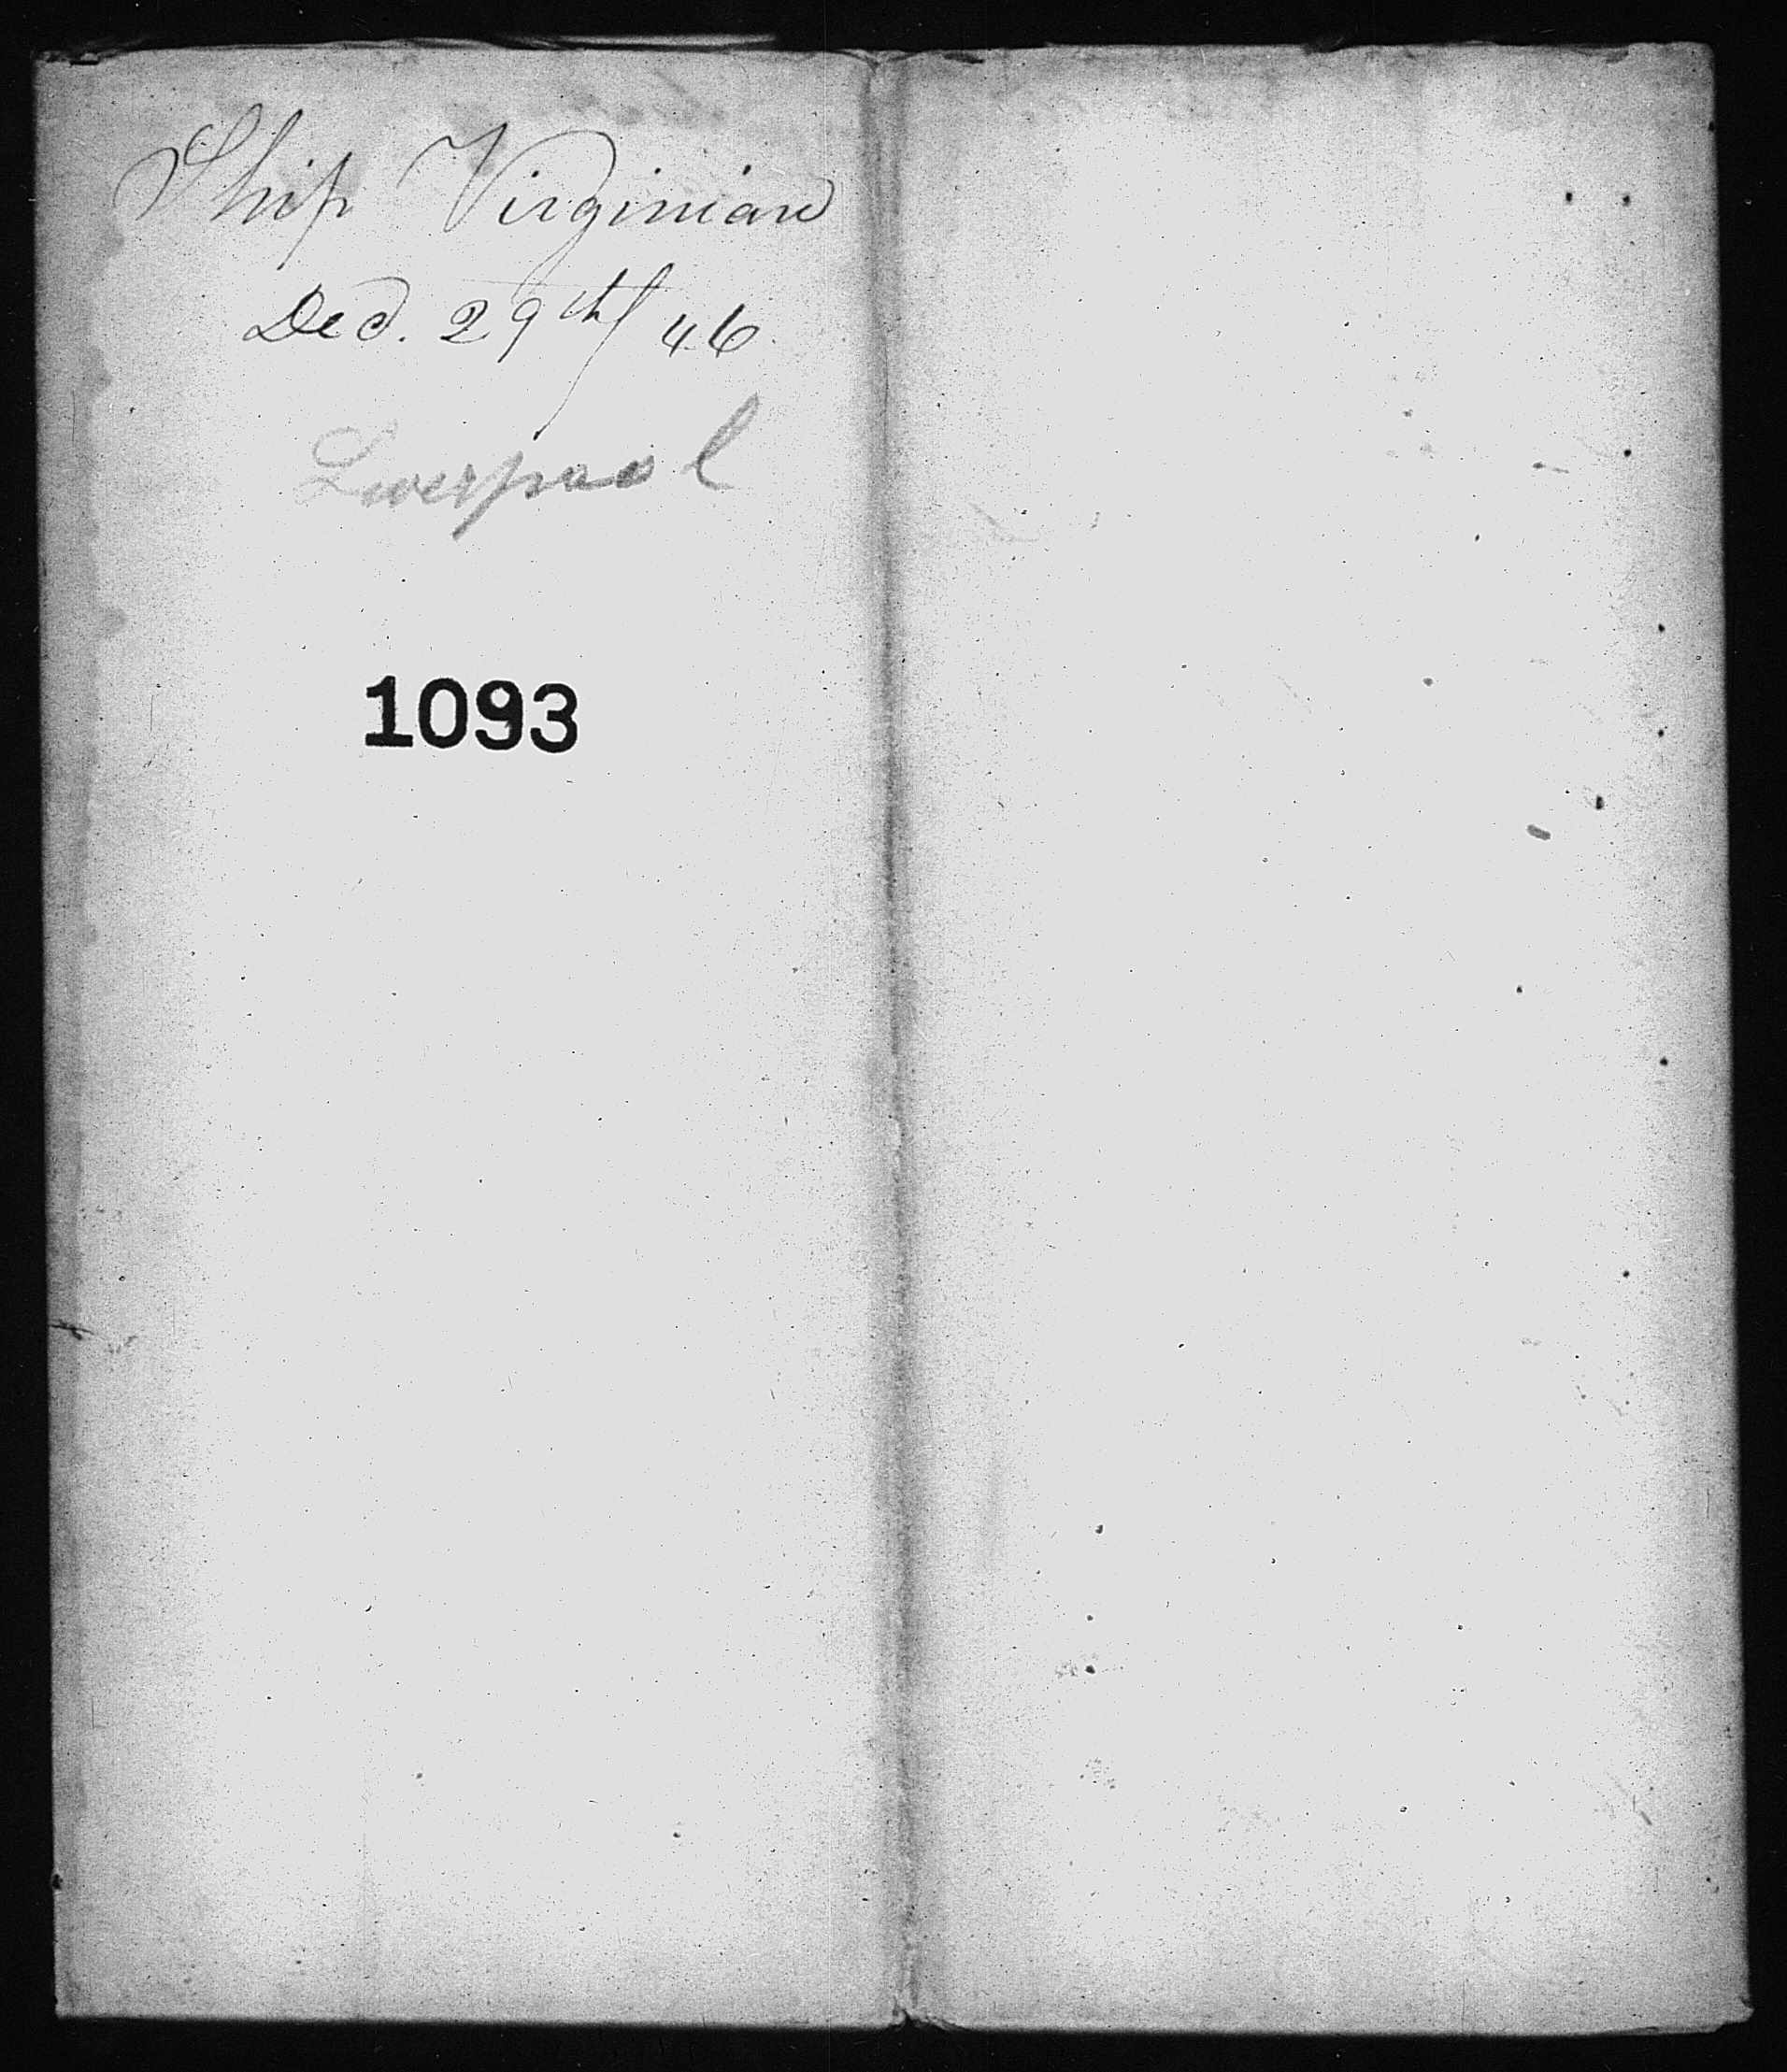 Ship Virginian
Dec. 29th/46.
Liverpool
1093